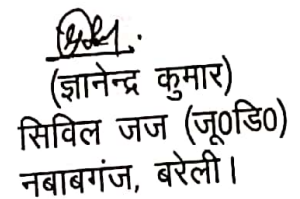 (ज्ञानेन्द्र कुमार)
सिविल जज (जू०डि०)
नबाबगंज, बरेली।